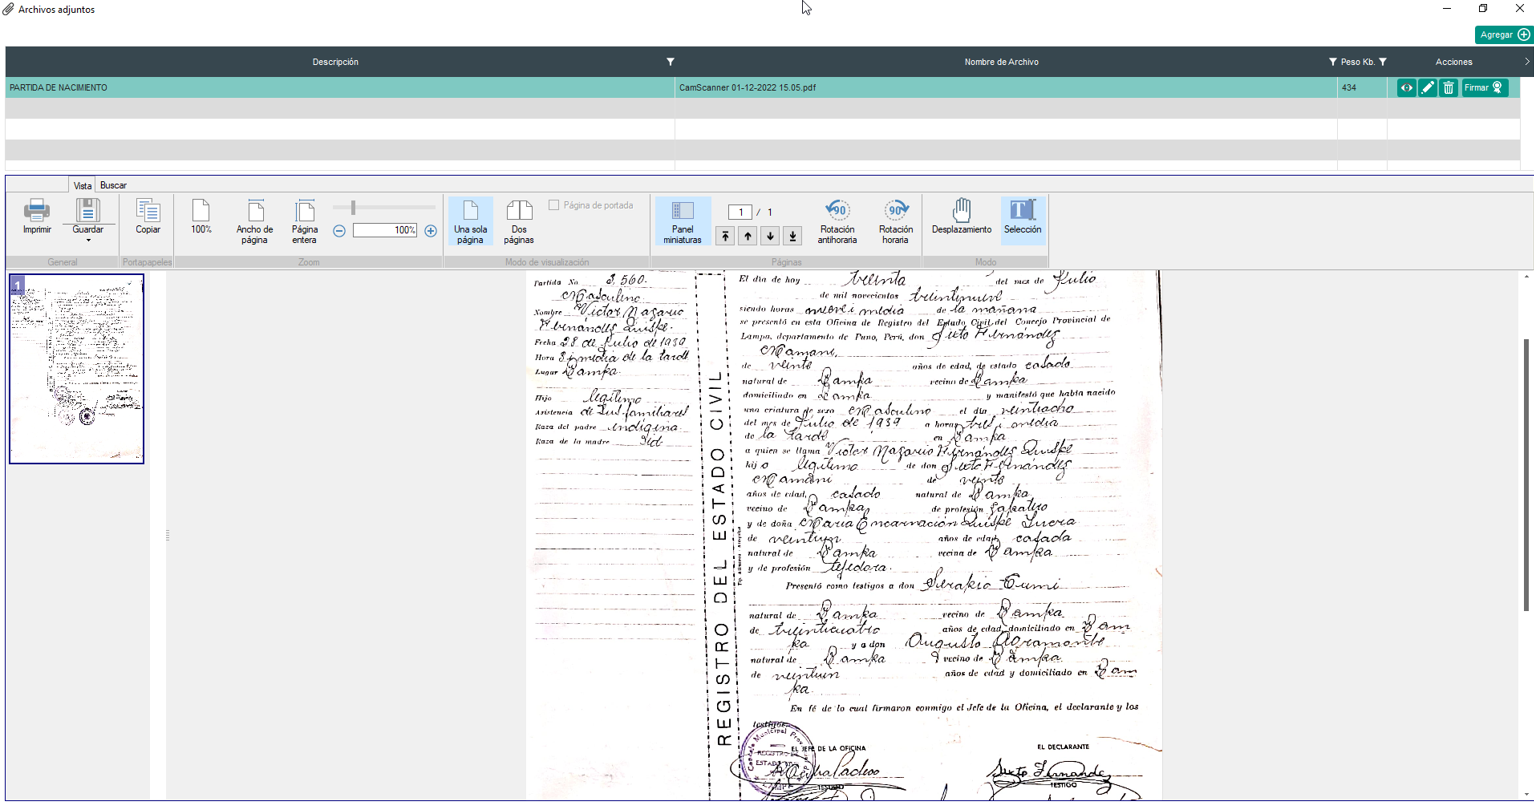 Archivos adjuntos
Agregar
Descripción
Nombre de Archivo
Peso Kb.
Acciones
PARTIDA DE NACIMIENTO
CamScanner 01-12-2022 15.05.pdf
434
Firmar
Vista
Buscar
Imprimir
Guardar
Copiar
100%
Ancho de página
Página entera
100%
Una sola página
Dos páginas
Página de portada
Panel miniaturas
1 / 1
Rotación antihoraria
Rotación horaria
Desplazamiento
Selección
General
Portapapeles
Zoom
Modo de visualización
Páginas
Modo
1
Partida No 2,560.
Masculino
Nombre Victor Nazario
Hernández Quispe.
Fecha 28 de Julio de 1939
Hora 3 i media de la tarde
Lugar Lampa.
Hijo legítimo
Asistencia de familiares
Raza del padre indígina
Raza de la madre Id.
REGISTRO DEL ESTADO CIVIL
El día de hoy treinta del mes de Julio
de mil novecientos treintinueve
siendo horas nueve i media de la mañana
se presentó en esta Oficina de Registro del Estado Civil del Concejo Provincial de
Lampa, departamento de Puno, Perú, don Sixto Hernández
Mamani,
de veinte años de edad, de estado casado
natural de Lampa vecino de Lampa
domiciliado en Lampa y manifestó que había nacido
una criatura de sexo Masculino el día veintiocho
del mes de Julio de 1939 a horas tres i media
de la tarde en Lampa
a quien se llama Victor Nazario Hernández Quispe
hijo legítimo de don Sixto Hernández
Mamani de veinte
años de edad, casado natural de Lampa
vecino de Lampa, de profesión zapatero
y de doña Maria Encarnación Quispe
de veintiun años de edad casada
natural de Lampa vecina de Lampa
y de profesión tejedora.
Presentó como testigos a don
natural de Lampa vecino de Lampa
de treinticuatro años de edad, domiciliado en Lam
pa y a don Augusto Agramonte
natural de Lampa vecino de Lampa
de veintiun años de edad y domiciliado en Lam
pa
En fé de lo cual firmaron conmigo el Jefe de la Oficina, el declarante y los
testigos
EL JEFE DE LA OFICINA
EL DECLARANTE
Sixto Hernandez
TESTIGO
TESTIGO